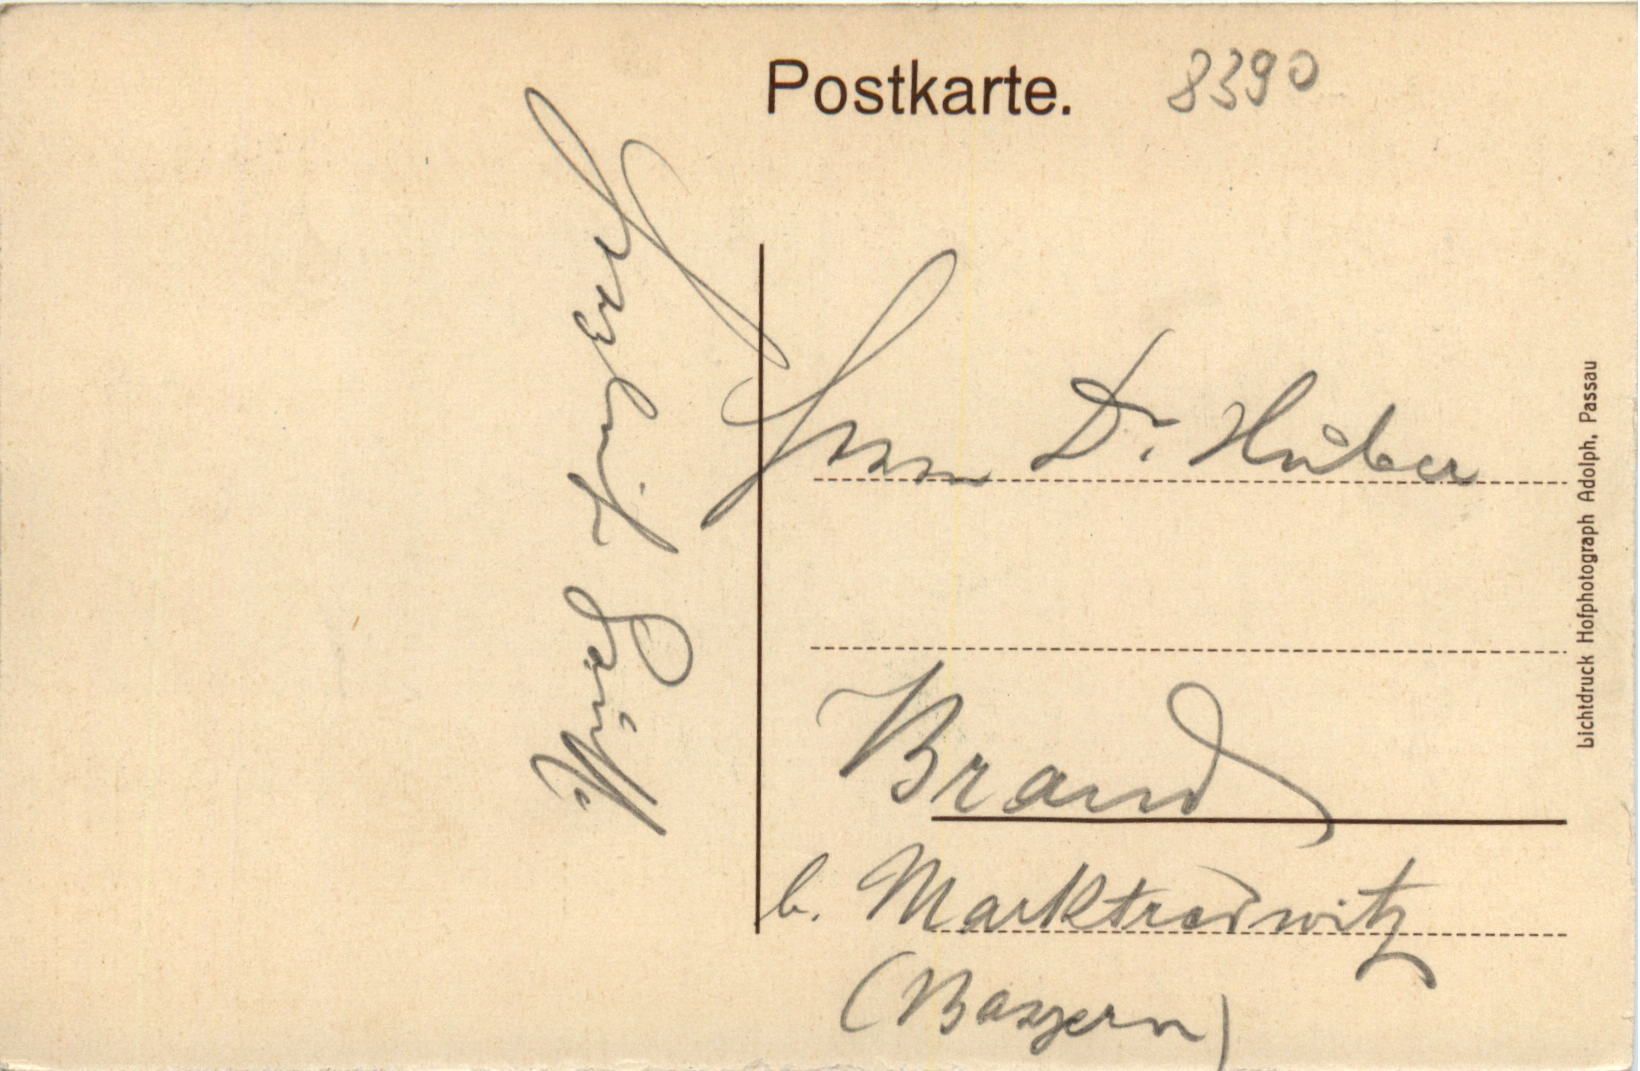 Postkarte.
8390
Dr. Huber
Brand
b. Marktredwitz
(Bayern)
Lichtdruck Hofphotograph Adolph, Passau